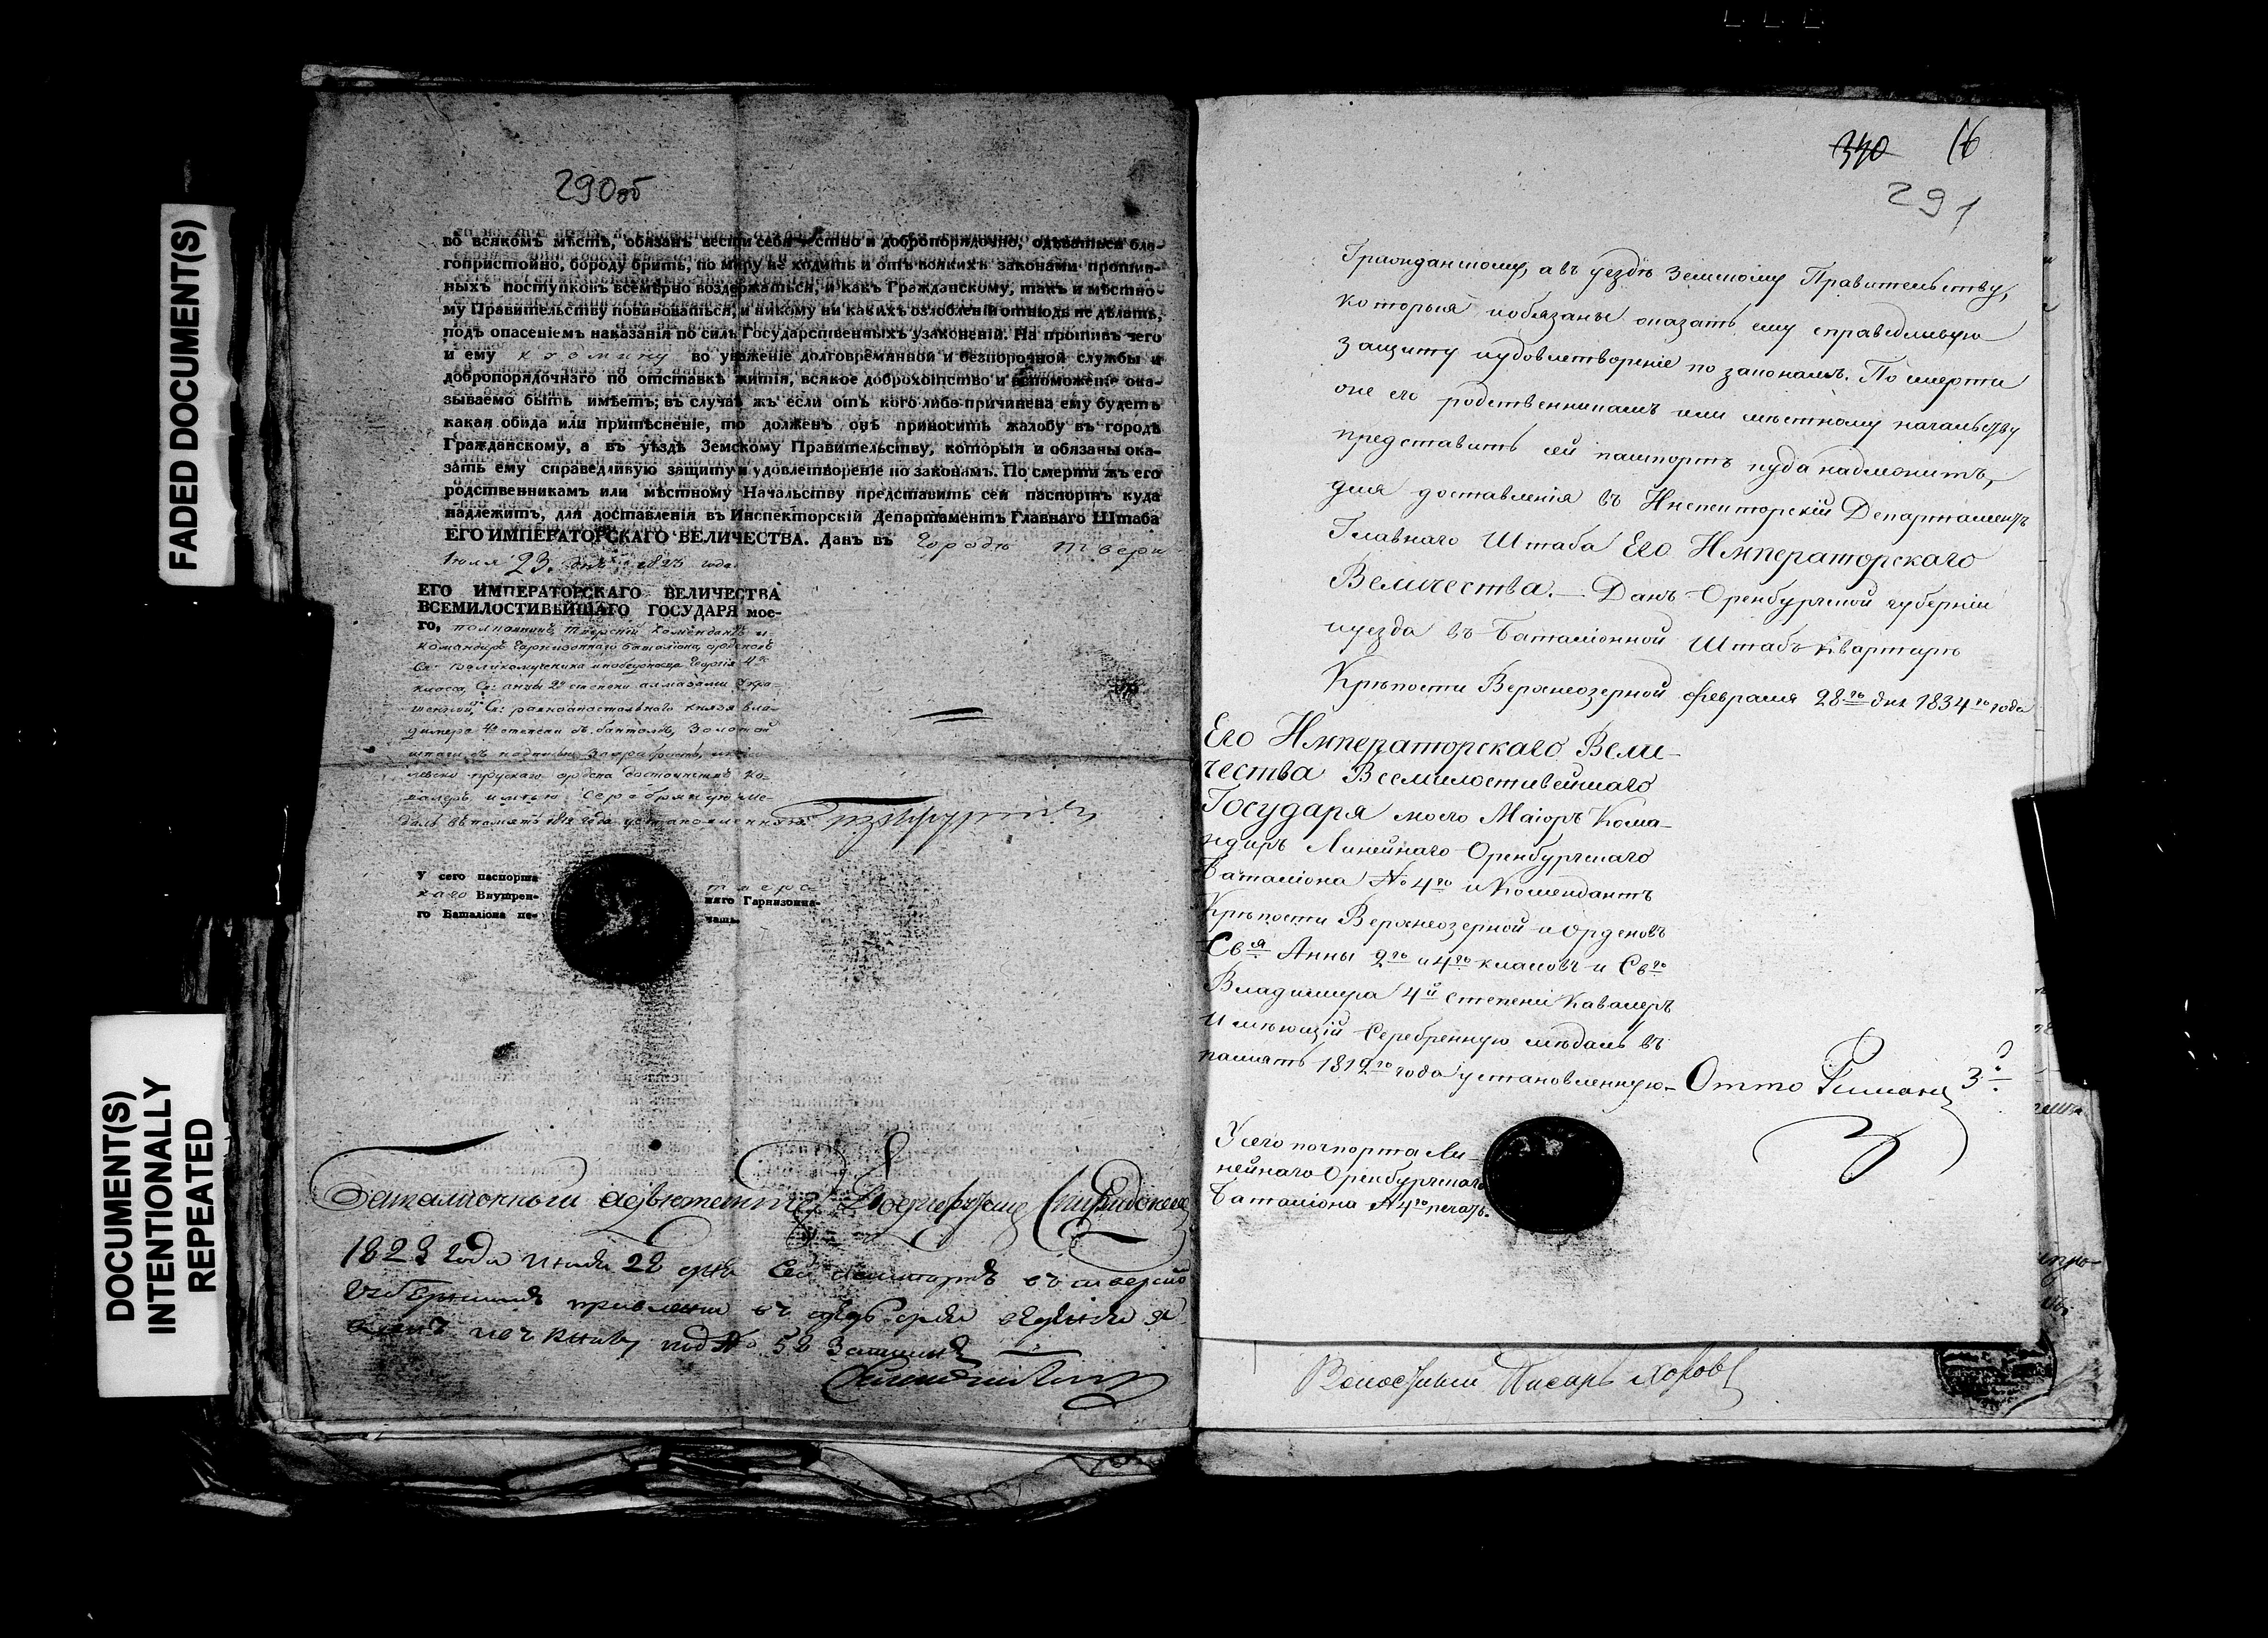 FADED DOCUMENT(S)
DOCUMENT(S)
INTENTIONALLY
REPEATED
290об
во всякомъ мѣстѣ, обязанъ вести себя честно и добропорядочно, одѣваться бла-
гопристойно, бороду брить, по миру не ходить и отъ всякихъ законами против-
ныхъ поступковъ всемѣрно воздержаться, и какъ Гражданскому, такъ и мѣстно-
му Правительству повиноваться, и никому ни какихъ озлобленій отнюдь не дѣлать,
подъ опасеніемъ наказанія по силѣ Государственныхъ узаконеній. На противъ чего
и ему во уваженіе долговрѣмянной и безпорочной службы и
добропорядочнаго по отставкѣ житія, всякое доброхотство и вспоможеніе ока-
зываемо быть имѣетъ; въ случаѣ жъ если отъ кого либо причинена ему будетъ
какая обида или притѣсненіе, то долженъ онъ приносить жалобу въ городѣ
Гражданскому, а въ уѣздѣ Земскому Правительству, которыя и обязаны ока-
зать ему справедливую защиту и удовлетвореніе по законамъ. По смерти жъ его
родственникамъ или мѣстному Начальству представить сей паспортъ куда
надлежитъ, для доставленія въ Инспекторскій Департаментъ Главнаго Штаба
ЕГО ИМПЕРАТОРСКАГО ВЕЛИЧЕСТВА. Данъ въ городѣ Твери
Іюля 23. дня 1823 года.
ЕГО ИМПЕРАТОРСКАГО ВЕЛИЧЕСТВА
ВСЕМИЛОСТИВѢЙШАГО ГОСУДАРЯ мое-
го, полковникъ Тверскій комендантъ и
командиръ Гарнизоннаго баталіона, орденовъ
Св: великомученика и победоносца Георгія 4го
класса, Св: анны 2й степени алмазами Укра-
шенной, Св: равноапостольнаго князя Вла-
димера 4й степени съ бантомъ, золотой
шпаги съ надписью за храбрость,
прускаго ордена достоинства Ка-
валеръ имѣю серебряную ме-
даль въ память 1812 года установленную.
У сего паспорта Тверс-
каго Внутрен- няго Гарнизонна-
го Баталіона пе- чать.
Баталионный адъютантъ
1823 года июля 22 дня сей пашпортъ в тверско
под № 52 записанъ
340 16
291
Гражданскому, а въ уездѣ Земскому Правительству,
которыя и обязаны оказать ему справедливую
защиту и удовлетвореніе по законамъ. По смерти
оне его родственникамъ или мѣстному начальству
представить сей пашпортъ куда надлежитъ,
для доставленія въ Инспекторскій Департаментъ
Главнаго Штаба Его Императорскаго
Величества. — Данъ Оренбургской губерніи
и уезда въ Баталіонной Штабъ Квартирѣ
Крѣпости Верхнеозерной февраля 28го дня 1834го года
Его Императорскаго Вели-
чества Всемилостивейшаго
Государя моего Маіоръ Кома-
ндиръ Линейнаго Оренбургскаго
Баталіона № 4го и Комендантъ
Крѣпости Верхнеозерной и Орденовъ
Свя Анны 2го и 4го классовъ и Свго
Владимира 4й степени Кавалеръ
Имѣющій Серебренную мѣдаль въ
память 1812го года установленную — Отто 3й
У сего пошпорта Ли-
нейнаго Оренбургскаго
Баталіона № 4го печать.
Волостный Писарь